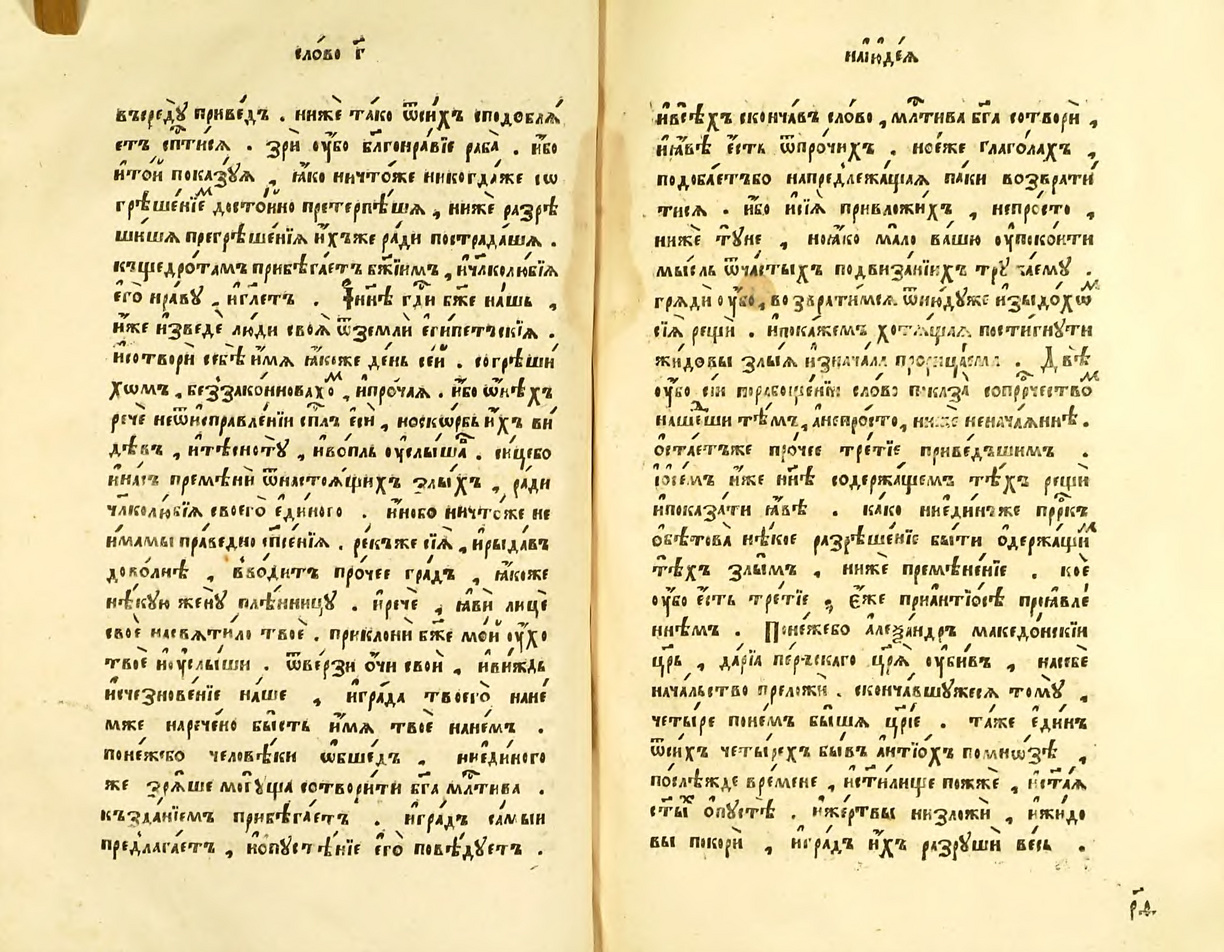 сло́во г҃
въсре́дꙋ приве́дъ . нижѐ та́ко ѿси́хъ сподоблѧ́
етъ сѧ̑тисѧ . зрѝ ᲂу҆̀бо бл҃гонра́вїе раба̀ . и҆́бо
и҆то́й показꙋ́ѧ , ꙗ҆́ко ничто́же никогда́же со
грѣше́нїемъ досто́йно претерпѣ́шѧ , нижѐ разрѣ
ши́шѧ прегрѣше́нїѧ и҆́хъже ра́ди пострада́шѧ .
къщедро́тамъ прибѣга́етъ бж҃їимъ , и҆чл҃колю́бїѧ
є҆гѡ̀ нра́вꙋ . и҆гл҃етъ . И҆нн҃ѣ гд҃и бж҃е на́шъ ,
и҆́же и҆зведѐ лю́ди своѧ̀ ѿземлѝ є҆гѵ́петъскїѧ .
и҆сотворѝ себѣ̀ и҆́мѧ ꙗ҆́коже де́нь се́й . согрѣши́
хомъ , беззако́нновахомъ , и҆про́чаѧ . и҆́бо ѡ҆нѣ́хъ
речѐ неѡ҆и҆справле́нїи сп҃лъ є҆сѝ , носко́рбь и҆́хъ ви́
дѣвъ , и҆тѣсноту̀ , и҆во́пль ᲂу҆слы́ша . си́цебо
и҆на́съ премѣнѝ ѿнастоѧ́щихъ злы́хъ , ра́ди
чл҃колю́бїѧ своегѡ̀ є҆ди́ного . и҆́ноbо ничто́же не
и҆́мамы пра́ведно сп҃се́нїѧ . ре́къже сїѧ̀ , и҆рыда́въ
дово́лнѣ , вво́дитъ про́чее гра́дъ , ꙗ҆́коже
нѣ́кую женꙋ̀ плѣ́нницꙋ . и҆речѐ , ꙗ҆вѝ лицѐ
своѐ насвѧти́ло твоѐ . приклонѝ бж҃е мо́й ᲂу҆́хо
твоѐ и҆ᲂу҆слы́ши . ѿве́рзи ѻ҆́чи своѝ , и҆ви́ждь
и҆счезнове́нїе на́ше , и҆гра́да твоегѡ̀ нане́
мже нарече́но бы́сть и҆́мѧ твоѐ нане́мъ .
поне́жебо человѣ́ки ѡ҆бше́дъ , ниединого
же зрѧ́ше могꙋ́ща сотвори́ти бг҃а млⷭ҇тива .
къзда́нїемъ прибѣга́етъ . и҆гра́дъ са́мыи
предлага́етъ , и҆ѡ҆пꙋстѣ́нїе є҆гѡ̀ повѣ́дꙋетъ .
наї҆ꙋдє́ѧ
и҆всѣ́хъ сконча́въ сло́во , млⷭ҇тива бг҃а сотворѝ ,
и҆ꙗ҆́вѣ є҆́сть ѿпро́чихъ . но́еже глаго́лахъ ,
подоба́етъбо напредлежа́щаѧ па́ки возврати́
тисѧ . и҆́бо и҆сїѧ̀ приложи́хъ , непро́сто ,
нижѐ тꙋ́не , ноꙗ҆́ко ма́ло ва́шю ᲂу҆поко́ити
мы́сль ѿча́стыхъ подвиза́нїихъ трꙋжда́емꙋ .
грѧдѝ ᲂу҆̀бо , возврати́мсѧ ѿню́дꙋже и҆зыдо́хом
сїѧ̀ рещѝ . и҆пока́жемъ хотѧ́щаѧ пости́гнꙋти
жидо́вы злы́ѧ и҆знача́ла прорица́ема . Двѣ̀
ᲂу҆̀бо сїи порабоще́нїи сло́во показа̀ сопроро́чествомъ
наше́дши тѣ́мъ , а҆непро́сто , нижѐ нечаѧннѣ .
ѡ҆ста́етъже про́чее тре́тїе приве́дъшимъ .
ѡ҆се́мъ и҆́же нн҃ѣ содержа́щемъ тѣ́хъ рещѝ
и҆показа́ти ꙗ҆́вѣ . ка́ко ниеди́нъже прⷪ҇ркъ
ѡ҆бѣтова̀ нѣ́кое разрѣше́нїе бы́ти ѡ҆держа́щимъ
тѣ́хъ злы́мъ , нижѐ премѣне́нїе . ко́е
ᲂу҆̀бо є҆́сть тре́тїе ; є҆́же приа҆нтїо́сѣ проꙗ҆вле́
ннѣмъ . Поне́жебо а҆леѯа́ндръ македо́нскїи
цр҃ь , да́рїа пе́ръскаго цр҃ѧ̀ ᲂу҆би́въ , насебѐ
нача́льство преложѝ . сконча́вшꙋжесѧ томꙋ̀ ,
четы́ре поне́мъ бы́шѧ цр҃їе . та́же є҆ди́нъ
ѿси́хъ четы́рехъ бы́въ а҆нтїо́хъ помно́зѣ ,
послѣ́жде вре́мене , и҆сти́лище пожжѐ , и҆ста́ѧ
ст҃ы́хъ ѡ҆пꙋстѣ̀ . и҆же́ртвы низложѝ , и҆жидо́
вы покорѝ , и҆гра́дъ и҆́хъ разрꙋшѝ ве́сь .
р҃д.